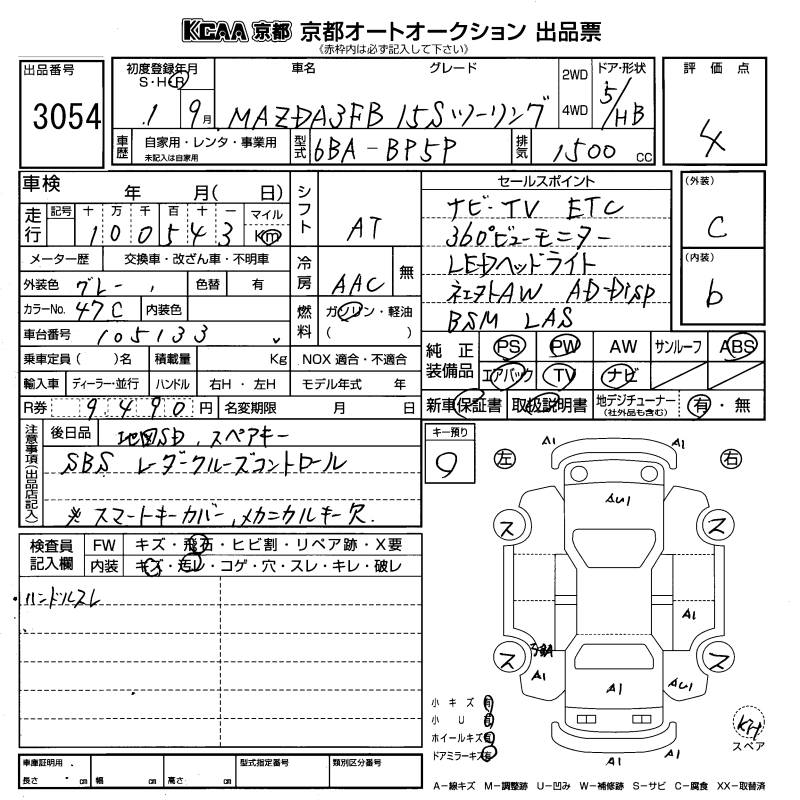 KCAA 京都 京都オートオークション 出品票
《赤枠内は必ず記入して下さい》
出品番号
3054
初度登録年月
S・H・R
1 9月
車名 グレード
MAZDA3FB 15S ツーリング
2WD
4WD
ドア・形状
5/HB
評価点
4
車歴
自家用・レンタ・事業用
未記入は自家用
型式
6BA-BP5P
排気
1500 cc
車検 年 月( 日)
走行
記号 十 万 千 百 十 一 マイル
100543 Km
メーター歴 交換車・改ざん車・不明車
外装色 グレー 色替 有
カラーNo. 47C 内装色
車台番号 105133
乗車定員( )名 積載量 Kg NOX 適合・不適合
輸入車 ディーラー・並行 ハンドル 右H・左H モデル年式 年
R券 9490円 名変期限 月 日
シフト
AT
冷房
AAC
無
燃料
ガソリン・軽油
( )
セールスポイント
ナビ-TV ETC
360°ビューモニター
LEDヘッドライト
ネェストAW AD-DISP
BSM LAS
(外装)
C
(内装)
b
純正装備品
PS PW AW サンルーフ ABS
エアバック TV ナビ
新車保証書 取扱説明書 地デジチューナー
(社外品も含む)
有・無
注意事項(出品店記入)
後日品 地図SD、スペアキー
SBS レーダクルーズコントロール
※スマートキーカバー、メカニカルキー欠
キー預り
9
検査員記入欄
FW キズ・飛石・ヒビ割・リペア跡・X要
内装 キズ・汚レ・コゲ・穴・スレ・キレ・破レ
・ハンドルスレ
左
右
A1
A1
AU1
ス
ス
A1
ス
ス
A1
A1
AU1
A1
A1
小キズ 有
小U 有
ホイールキズ 有
ドアミラーキズ 有
KH
スペア
車庫証明用
長さ cm 幅 cm 高さ cm
型式指定番号
類別区分番号
A-線キズ M-調整跡 U-凹み W-補修跡 S-サビ C-腐食 XX-取替済